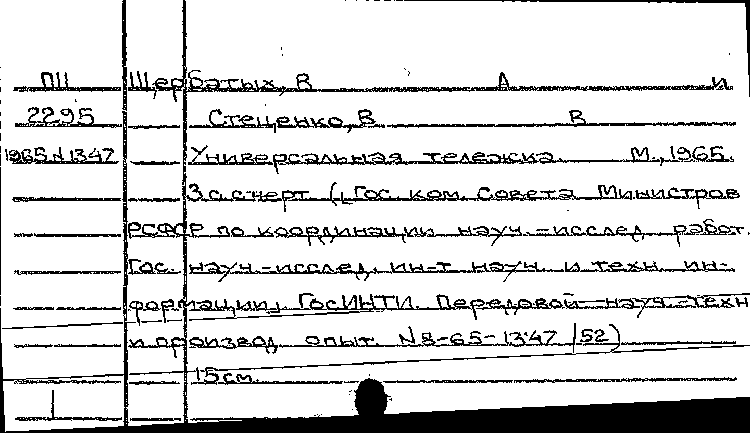 ПII Щербатых, В А и
2295 Стеценко, В В
1965 N 1347 Универсальная тележка. М., 1965.
3 с. с черт. (Гос. ком. Совета Министров
РСФСР по координации науч.-исслед. работ.
Гос. науч.-исслед. ин-т науч. и техн. ин-
формации. ГОСИНТИ. Передовой науч.-техн
и производ. опыт. N 8-65-1347/52)
15 см.